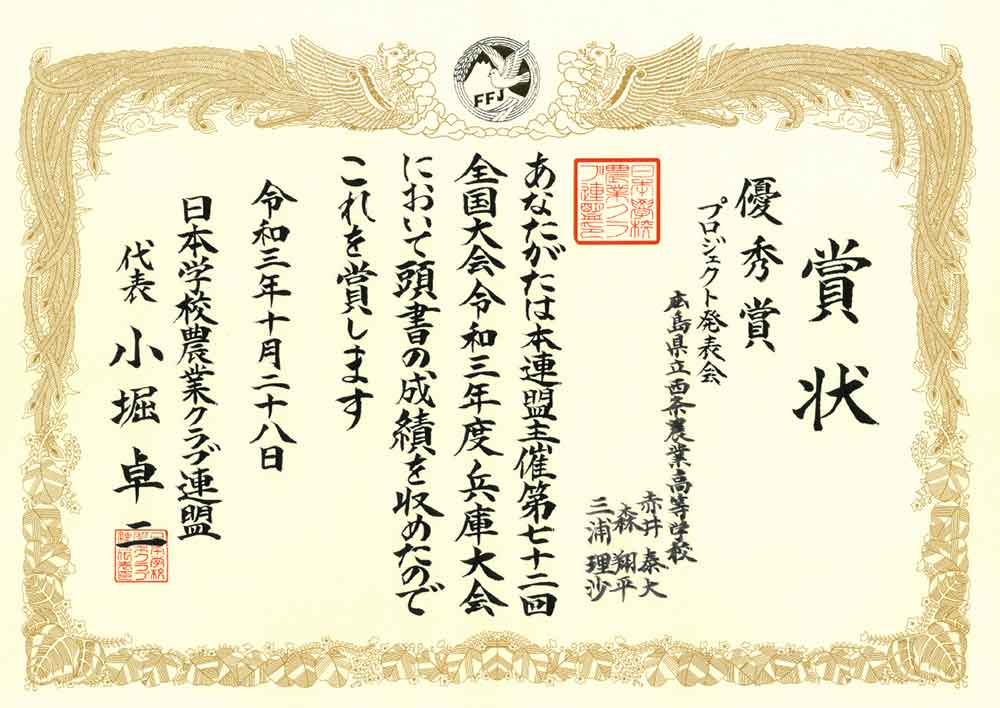 FFJ
賞状
優秀賞
プロジェクト発表会
広島県立西条農業高等学校
赤井泰大
森翔平
三浦理沙
日本学校
農業クラ
ブ連盟印
あなたがたは本連盟主催第七十二回
全国大会令和三年度兵庫大会
において頭書の成績を収めたので
これを賞します
令和三年十月二十八日
日本学校農業クラブ連盟
代表 小堀卓二